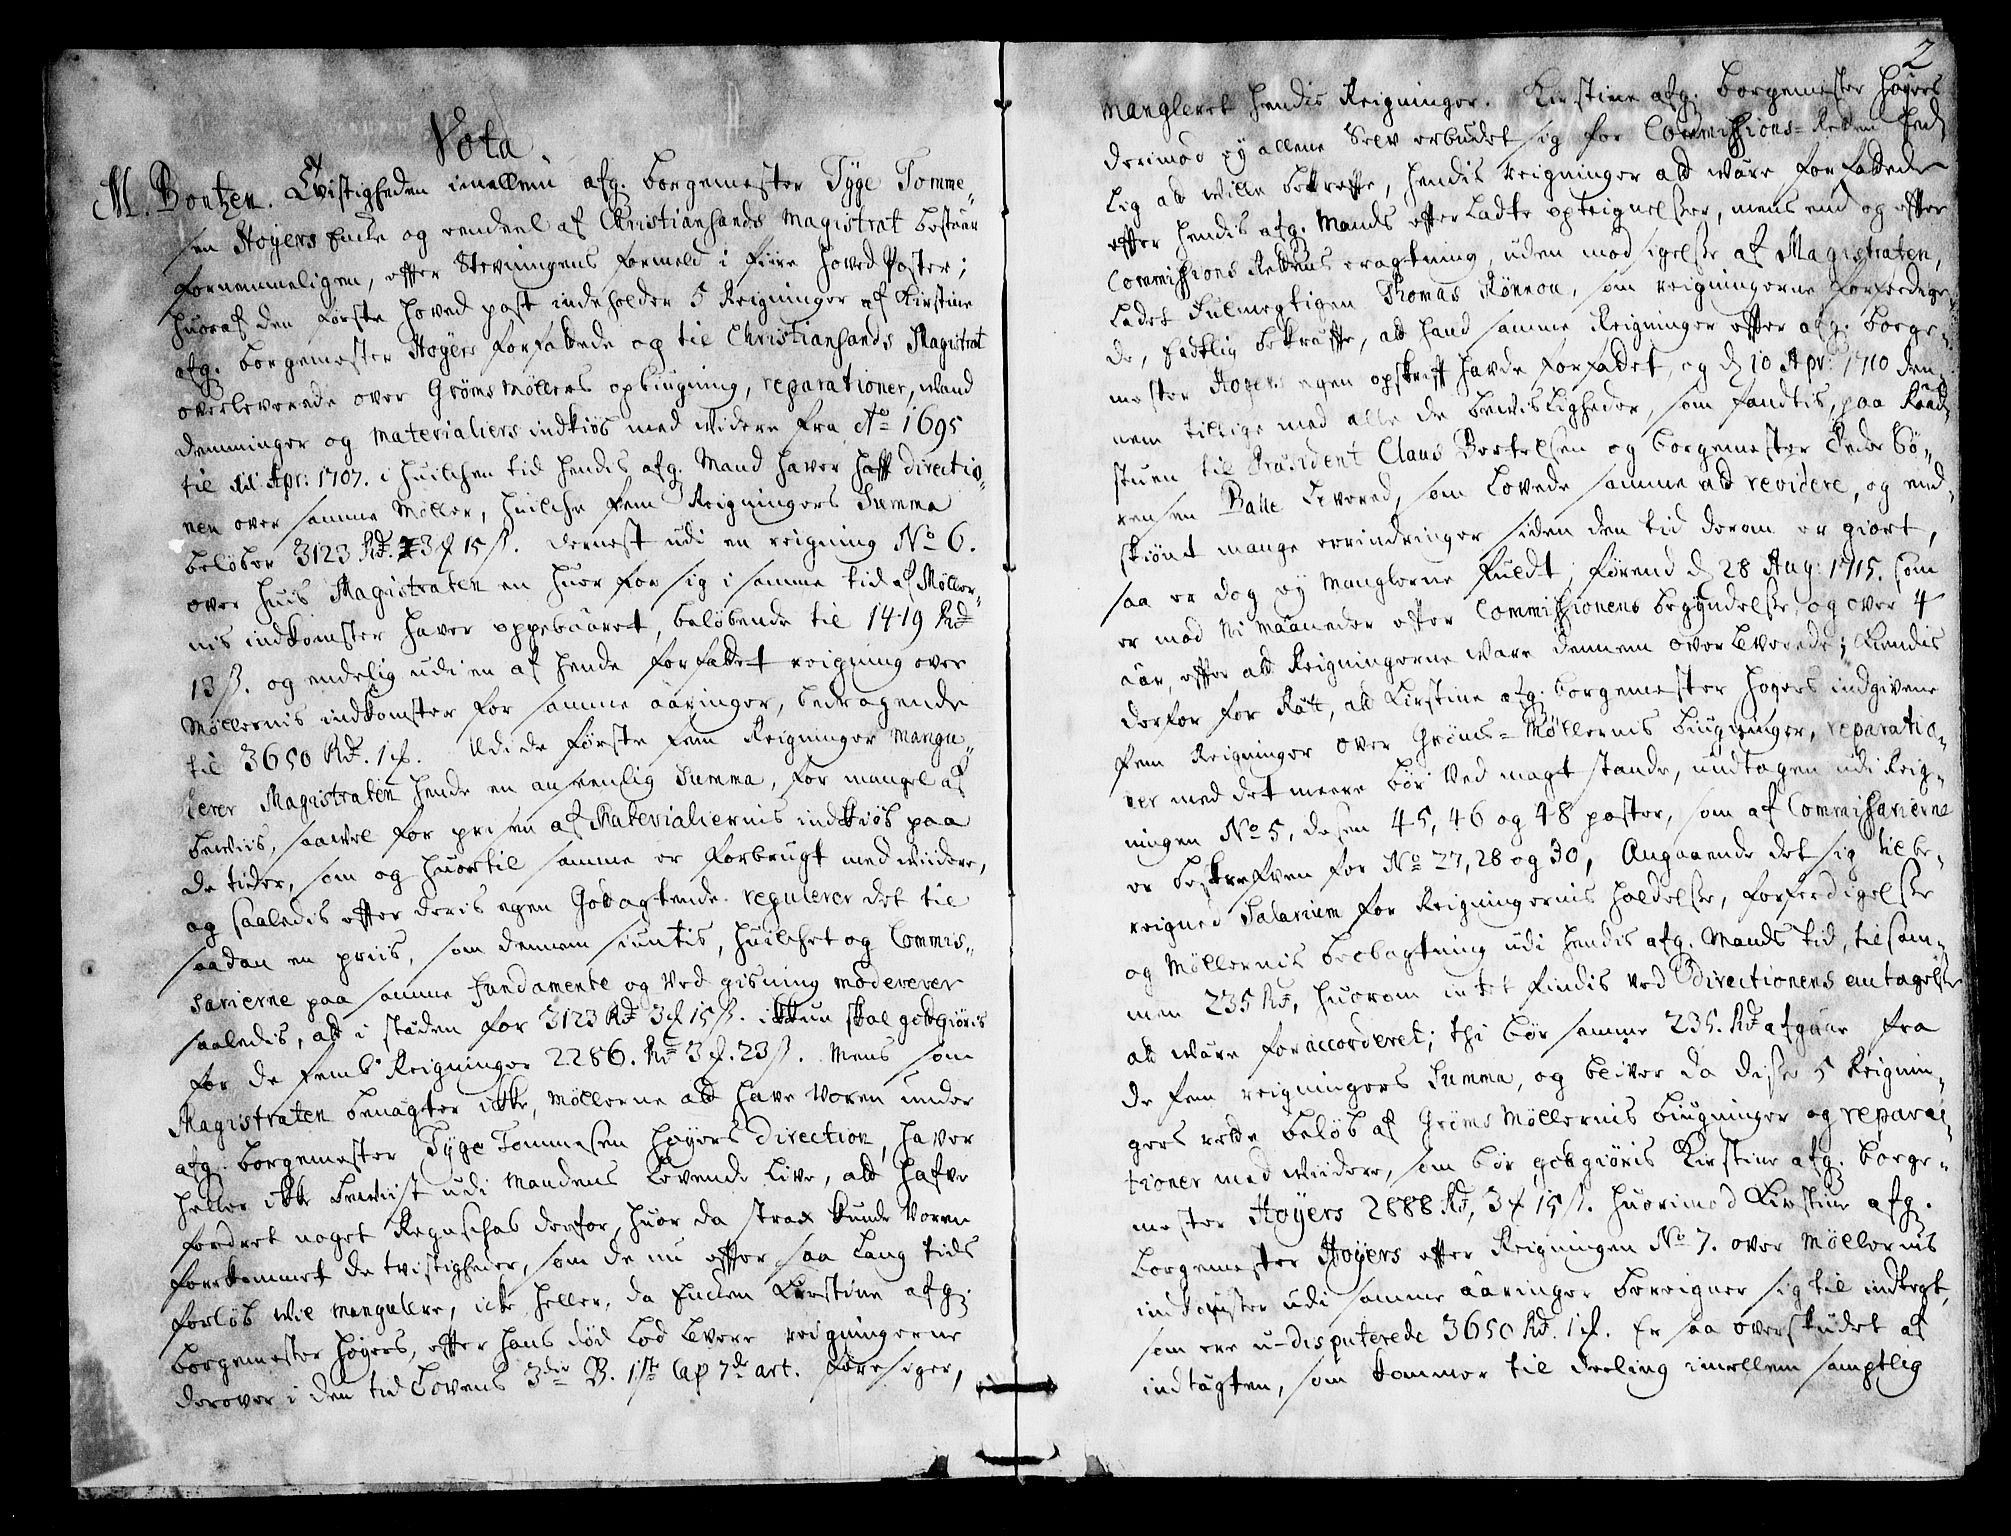 Vota
M. Bentzen. Tvistigheden imellem afg. borgemester Tyge Tomme-
sen Høyers Encke og eendeel af Christiansands Magistrat bestaar
fornemmeligen, effter Stevningens formeld i fiire hoved Poster;
huoraf den første hoved post indeholder 5 Reigninger af Kirstine
afg. borgemester Høyers forfattede og til Christiansands Magistrat
overleverede over Grøms Møllers opbiugning, reparationer, Wand
demninger og materialiers indkiøb med widere fra Ao 1695
til Apr: 1707. i huilchen tid hendis afg. Mand haver hafft directio-
nen over samme Møller, huilche fem Reigningers Summa
beløber 3123 Rd. 3 ₰ 15 ß. dernest udi en reigning No 6.
over huis Magistraten en huer for sig i samme tid af Møller-
nis indkomster haver oppebaaret, beløbende til 1419 Rd
13 ß. og endelig udi en af hende forfattet reigning over
Møllernis indkomster for samme aaringer, bedragende
til 3650 Rd. 1 ₰. Udi de første fem Reigninger mangu-
lerer Magistraten hende en anseenlig Summa, for mangel af
beviis, saavel for prisen af Materialiernis indkiøb paa
de tider, som og huortil samme er forbrugt med wiidere,
og saaledis effter deris egen Godagtende regulerer det til
saadan en priis, som dennem siuntis, huilchet og Commis-
sarierne paa samme fundamente og ved gisning modererer
saaledis, att i stæden for 3123 Rd 3 ₰ 15 ß. ickun skal godtgiøris
for de fem Reigninger 2286. Rd 3 ₰. 23 ß. Mens som
Magistraten benægter icke, Møllerne att have voren under
afg. borgemester Tyge Tommesen Høyers direction, haver
heller icke beviist udi Mandens levende live, att hafve
fordret noget Regnschab derfor, huor da strax kunde voren
forekommet de tvistigheder, som de nu effter saa lang tids
forløb wil mangulere, icke heller, da Encken Kirstine afg.
borgemester Høyers, effter hans død lod levere reigningerne
derover i den tid Lovens 3die B. 1ste Cap 7de art. foresiger,
2
mangleret hendis Reigninger. Kirstine afg. borgemester Høyers
derimod ey allene Selv erbudet sig for Commissions-Retten Eed
lig att wille bekreffte, hendis reigninger att være forfattede
effter hendis afg. Mands efterladte opteignelsser, mens end og effter
Commissions Rettens eragtning, uden modsigelsse af Magistraten,
ladet fulmegtigen Thomas Rønnou, som reigningerne forferdige-
de, Eedtlig bekræffte, att hand samme Reigninger effter afg. borge-
mester Høyers egen opskrifft havde forfattet, og d. 10 Apr: 1710 den-
nem tillige med alle de bevisligheder, som fandtis, paa Raad-
stuen til Præsident Claus Bertelsen og borgemester Peder Sø-
rensen Balle levered, som lovede samme att revidere, og end-
skiønt mange erindringer siden den tid derom er giort,
saa er dog ey manglerne fuldt, førend d. 28 Aug: 1715. som
er mod Ni Maaneder effter Commissionens begyndelsse, og over 4
aar, effter att Reigningerne ware dennem overleverede; kiendis
derfor for Rætt, att Kirstine afg. borgemester Høyers indgivene
fem Reigninger over Grøms-Møllernis biugninger, reparatio-
ner med det meere bør ved magt stande, undtagen udi Reig-
ningen No 5, desen 45, 46 og 48 poster, som af Commissarierne
er beskrefven for No 27, 28 og 30, Angaaende det sig tilbe-
reigned Salarium for Reigningernis holdelsse, forferdigelsse
og Møllernis beobagtning udi hendis afg. Mands tid, tilsam-
men 235 Rd, huorom intet findis ved Directionens antagelsse
att være foraccorderet; thi bør samme 235. Rd afgaae fra
de fem reigningers Summa, og bliver da disse 5 Reignin-
gers rette beløb af Grøms Møllernis biugninger og repara-
tioner med wiidere, som bør godtgiøris Kirstine afg. borge-
mester Høyers 2888 Rd, 3 ₰ 15 ß. huorimod Kirstine afg.
borgemester Høyers effter Reigningen No 7. over Møllernis
indkomster udi samme aaringer bereigner sig til indtegt,
som ere u-disputerede 3650 Rd. 1 ₰. Er saa overskudet af
indtægten, som kommer til deeling imellem samptlig